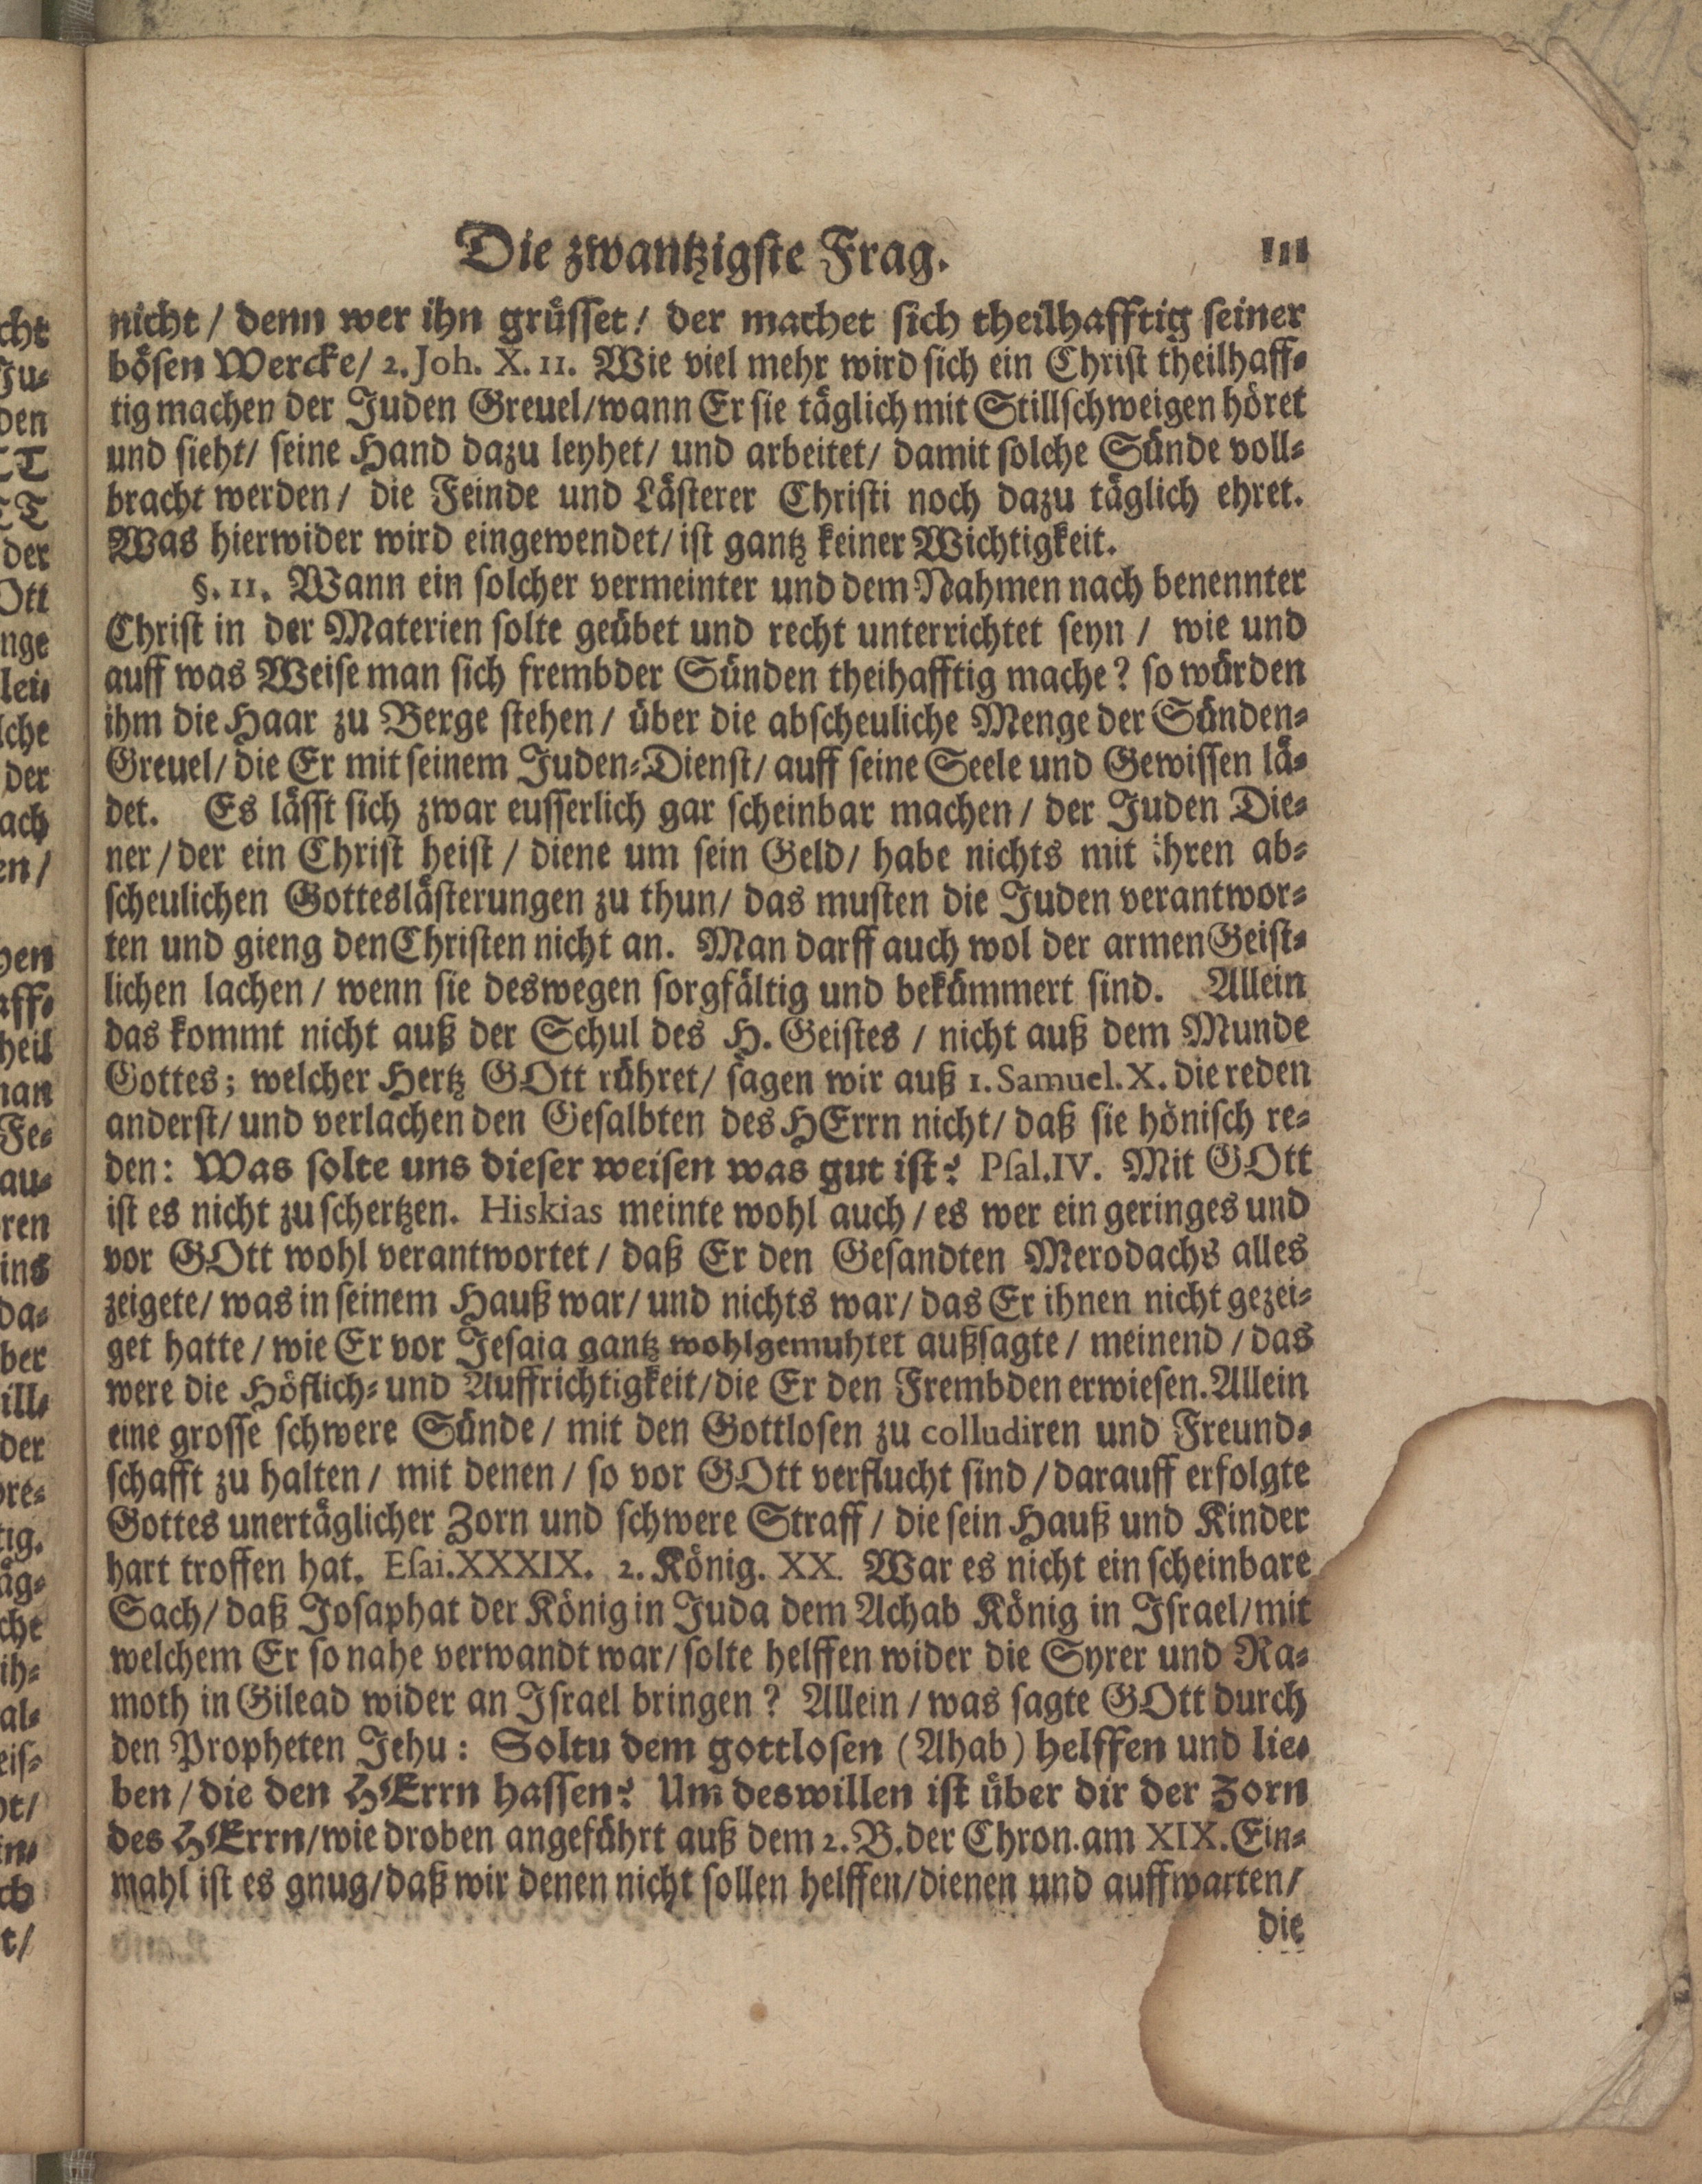 Die zwantzigste Frag. 111
nicht / denn wer ihn grüsset / der machet sich theilhafftig seiner
bösen Wercke / 2. Joh. X. 11. Wie viel mehr wird sich ein Christ theilhaff-
tig machen der Juden Greuel / wann Er sie täglich mit Stillschweigen höret
und sieht / seine Hand dazu leyhet / und arbeitet / damit solche Sünde voll-
bracht werden / die Feinde und Lästerer Christi noch dazu täglich ehret.
Was hierwider wird eingewendet / ist gantz keiner Wichtigkeit.
§. 11. Wann ein solcher vermeinter und dem Nahmen nach benennter
Christ in der Materien solte geübet und recht unterrichtet seyn / wie und
auff was Weise man sich frembder Sünden theihafftig mache? so würden
ihm die Haar zu Berge stehen / über die abscheuliche Menge der Sünden-
Greuel / die Er mit seinem Juden-Dienst / auff seine Seele und Gewissen lä-
det. Es lässt sich zwar eusserlich gar scheinbar machen / der Juden Die-
ner / der ein Christ heist / diene um sein Geld / habe nichts mit ihren ab-
scheulichen Gotteslästerungen zu thun / das musten die Juden verantwor-
ten und gieng den Christen nicht an. Man darff auch wol der armen Geist-
lichen lachen / wenn sie deswegen sorgfältig und bekümmert sind. Allein
das kommt nicht auß der Schul des H. Geistes / nicht auß dem Munde
Gottes; welcher Hertz GOtt rühret / sagen wir auß 1. Samuel. X. die reden
anderst / und verlachen den Gesalbten des HErrn nicht / daß sie hönisch re-
den: Was solte uns dieser weisen was gut ist? Psal. IV. Mit GOtt
ist es nicht zu schertzen. Hiskias meinte wohl auch / es wer ein geringes und
vor GOtt wohl verantwortet / daß Er den Gesandten Merodachs alles
zeigete / was in seinem Hauß war / und nichts war / das Er ihnen nicht gezei-
get hatte / wie Er vor Jesaia gantz wohlgemuhtet außsagte / meinend / das
were die Höflich- und Auffrichtigkeit / die Er den Frembden erwiesen. Allein
eine grosse schwere Sünde / mit den Gottlosen zu colludiren und Freund-
schafft zu halten / mit denen / so vor GOtt verflucht sind / darauff erfolgte
Gottes unertäglicher Zorn und schwere Straff / die sein Hauß und Kinder
hart troffen hat. Esai. XXXIX. 2. König. XX. War es nicht ein scheinbare
Sach / daß Josaphat der König in Juda dem Achab König in Israel / mit
welchem Er so nahe verwandt war / solte helffen wider die Syrer und Ra-
moth in Gilead wider an Israel bringen? Allein / was sagte GOtt durch
den Propheten Jehu: Soltu dem gottlosen (Ahab) helffen und lie-
ben / die den HErrn hassen? Um deswillen ist über dir der Zorn
des HErrn / wie droben angeführt auß dem 2. B. der Chron. am XIX. Ein-
mahl ist es gnug / daß wir denen nicht sollen helffen / dienen und auffwarten /
die